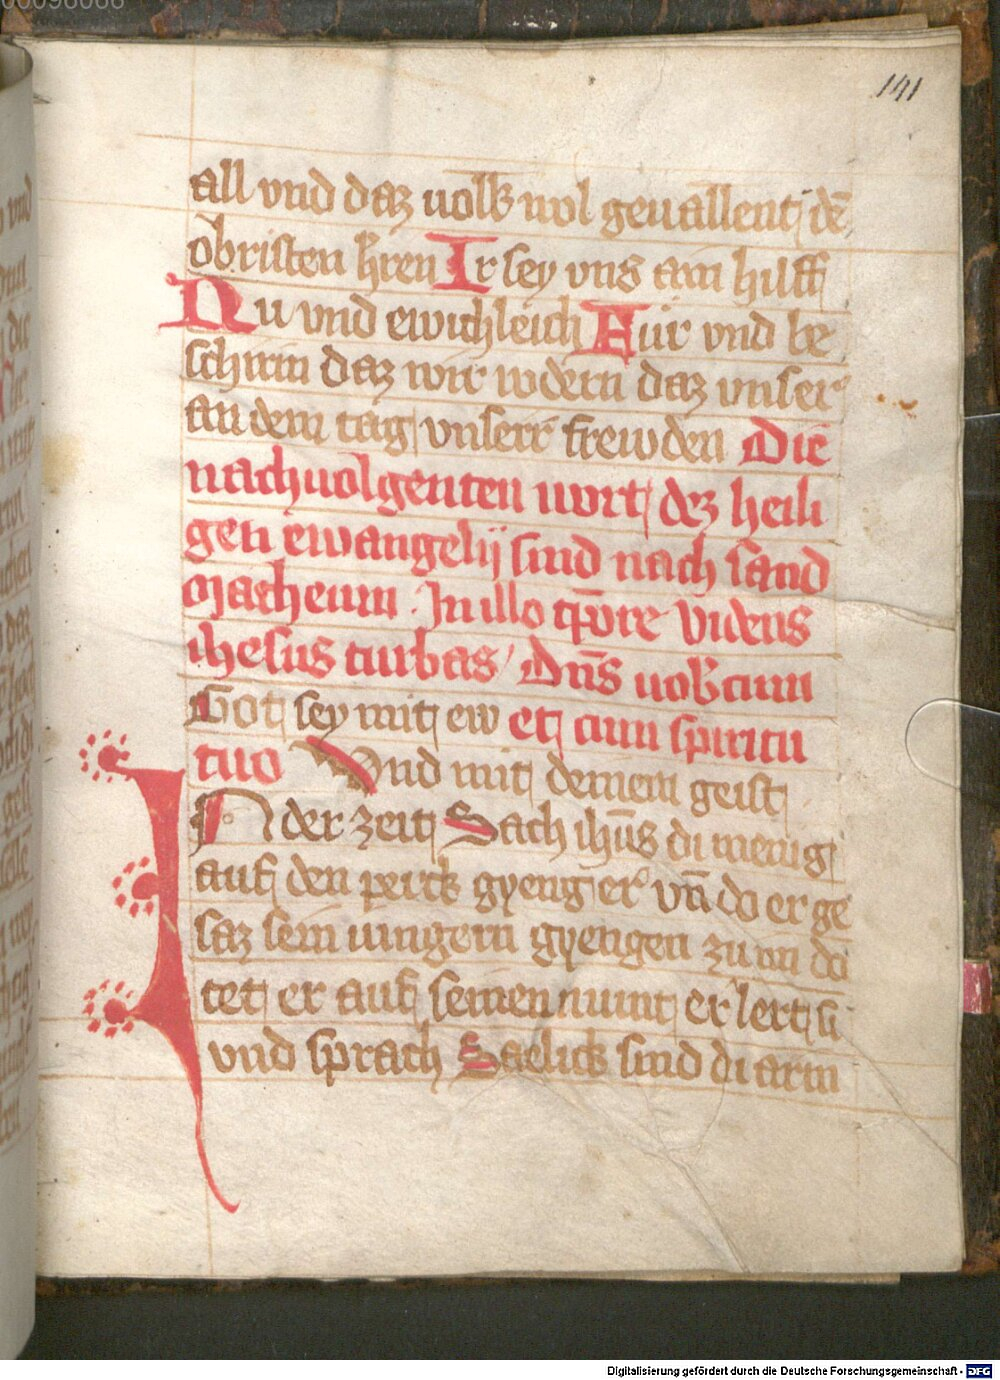 141
all vnd daz uolk wol geuallent dē
obristen hren Ir sey vns am hilff
Nu vnd ewichleich Fur vnd be
schirm daz wir vodern daz vnser
an dem tag vnserr frewden Die
nachuolgenten wort dez heili
gen ewangelij sind nach sand
Matheum . In illo tpore Videns
ihesus turbas / Dns uobcum
Got sey mit ew et cum spiritu
tuo Vnd mit deinem geist
IN der zeit Sach ihus di menig
auf den perck gyeng er vn do er ge
saz sein iungern gyengen zu im do
tet er auf seinen munt er lert si
vnd sprach Saelick sind di arm
Digitalisierung gefördert durch die Deutsche Forschungsgemeinschaft - DFG